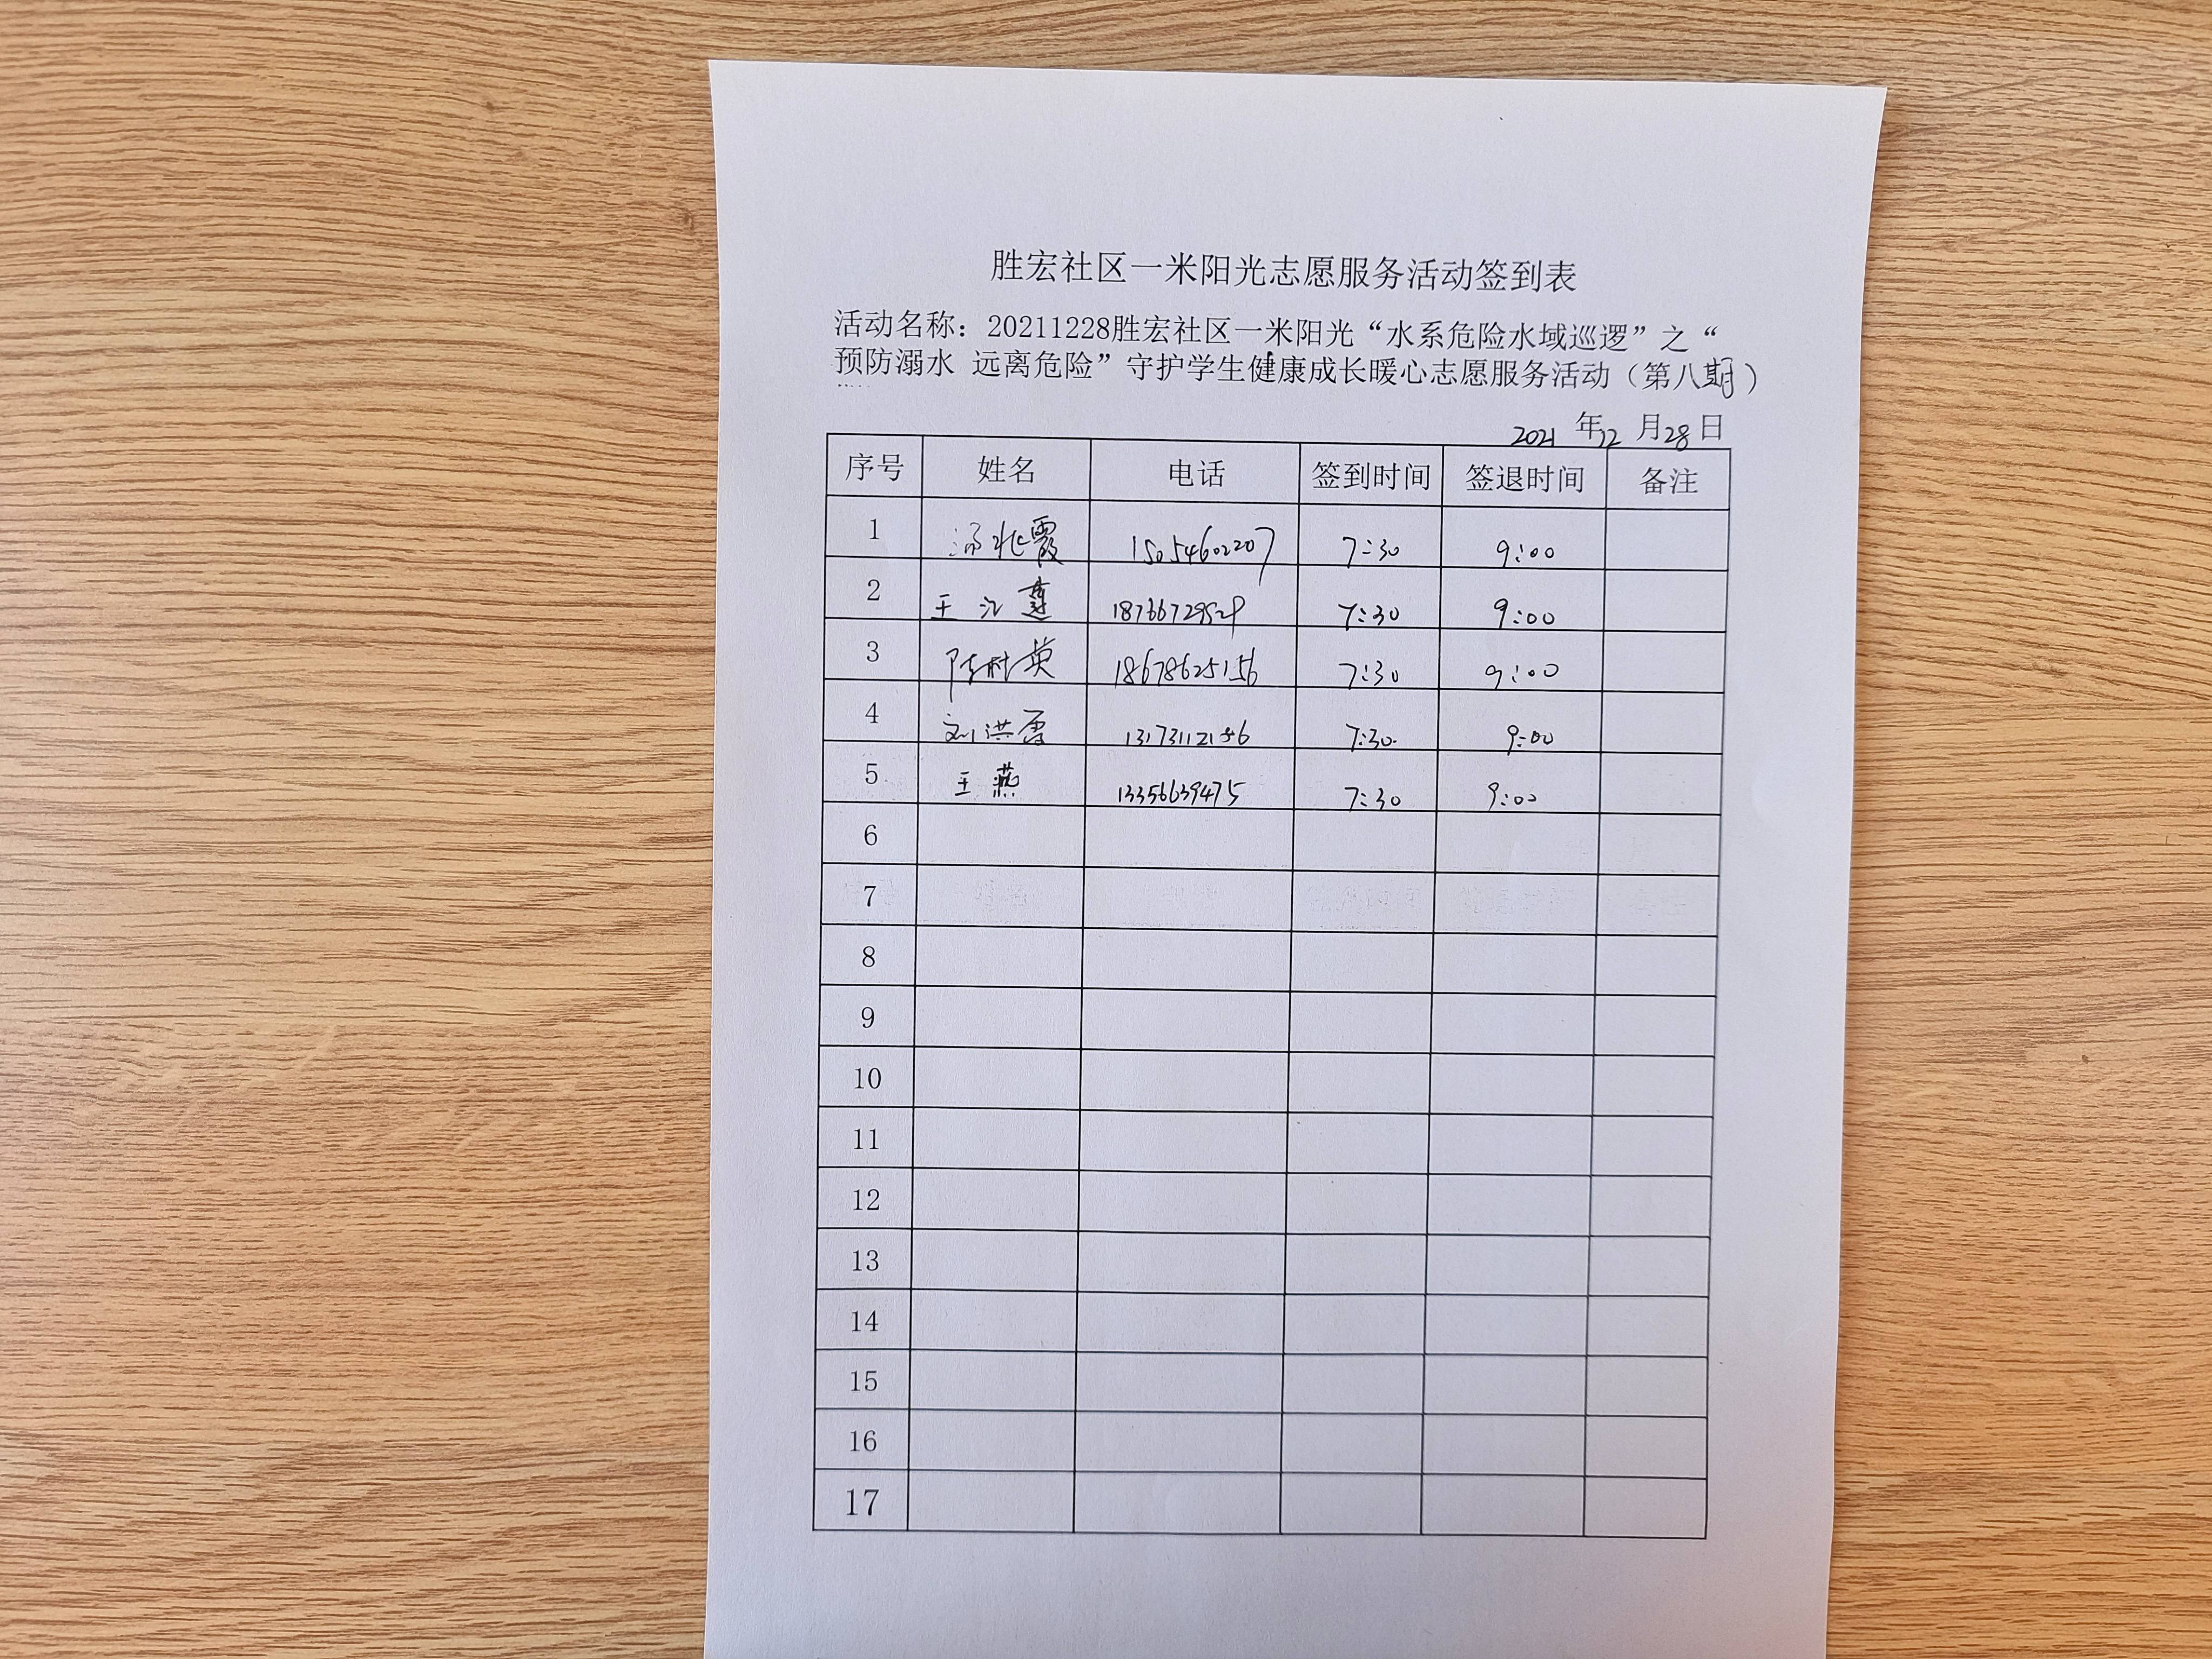 胜宏社区一米阳光志愿服务活动签到表
活动名称：20211228胜宏社区一米阳光“水系危险水域巡逻”之“
预防溺水 远离危险”守护学生健康成长暖心志愿服务活动（第八期）
2021 年12 月28日
序号 姓名 电话 签到时间 签退时间 备注
1 汤兆霞 15054602207 7:30 9:00
2 王 莲 7:30 9:00
3 英 18678625156 7:30 9:00
4 刘洪雪 7:30 9:00
5 王燕 13356639475 7:30 9:00
6
7
8
9
10
11
12
13
14
15
16
17